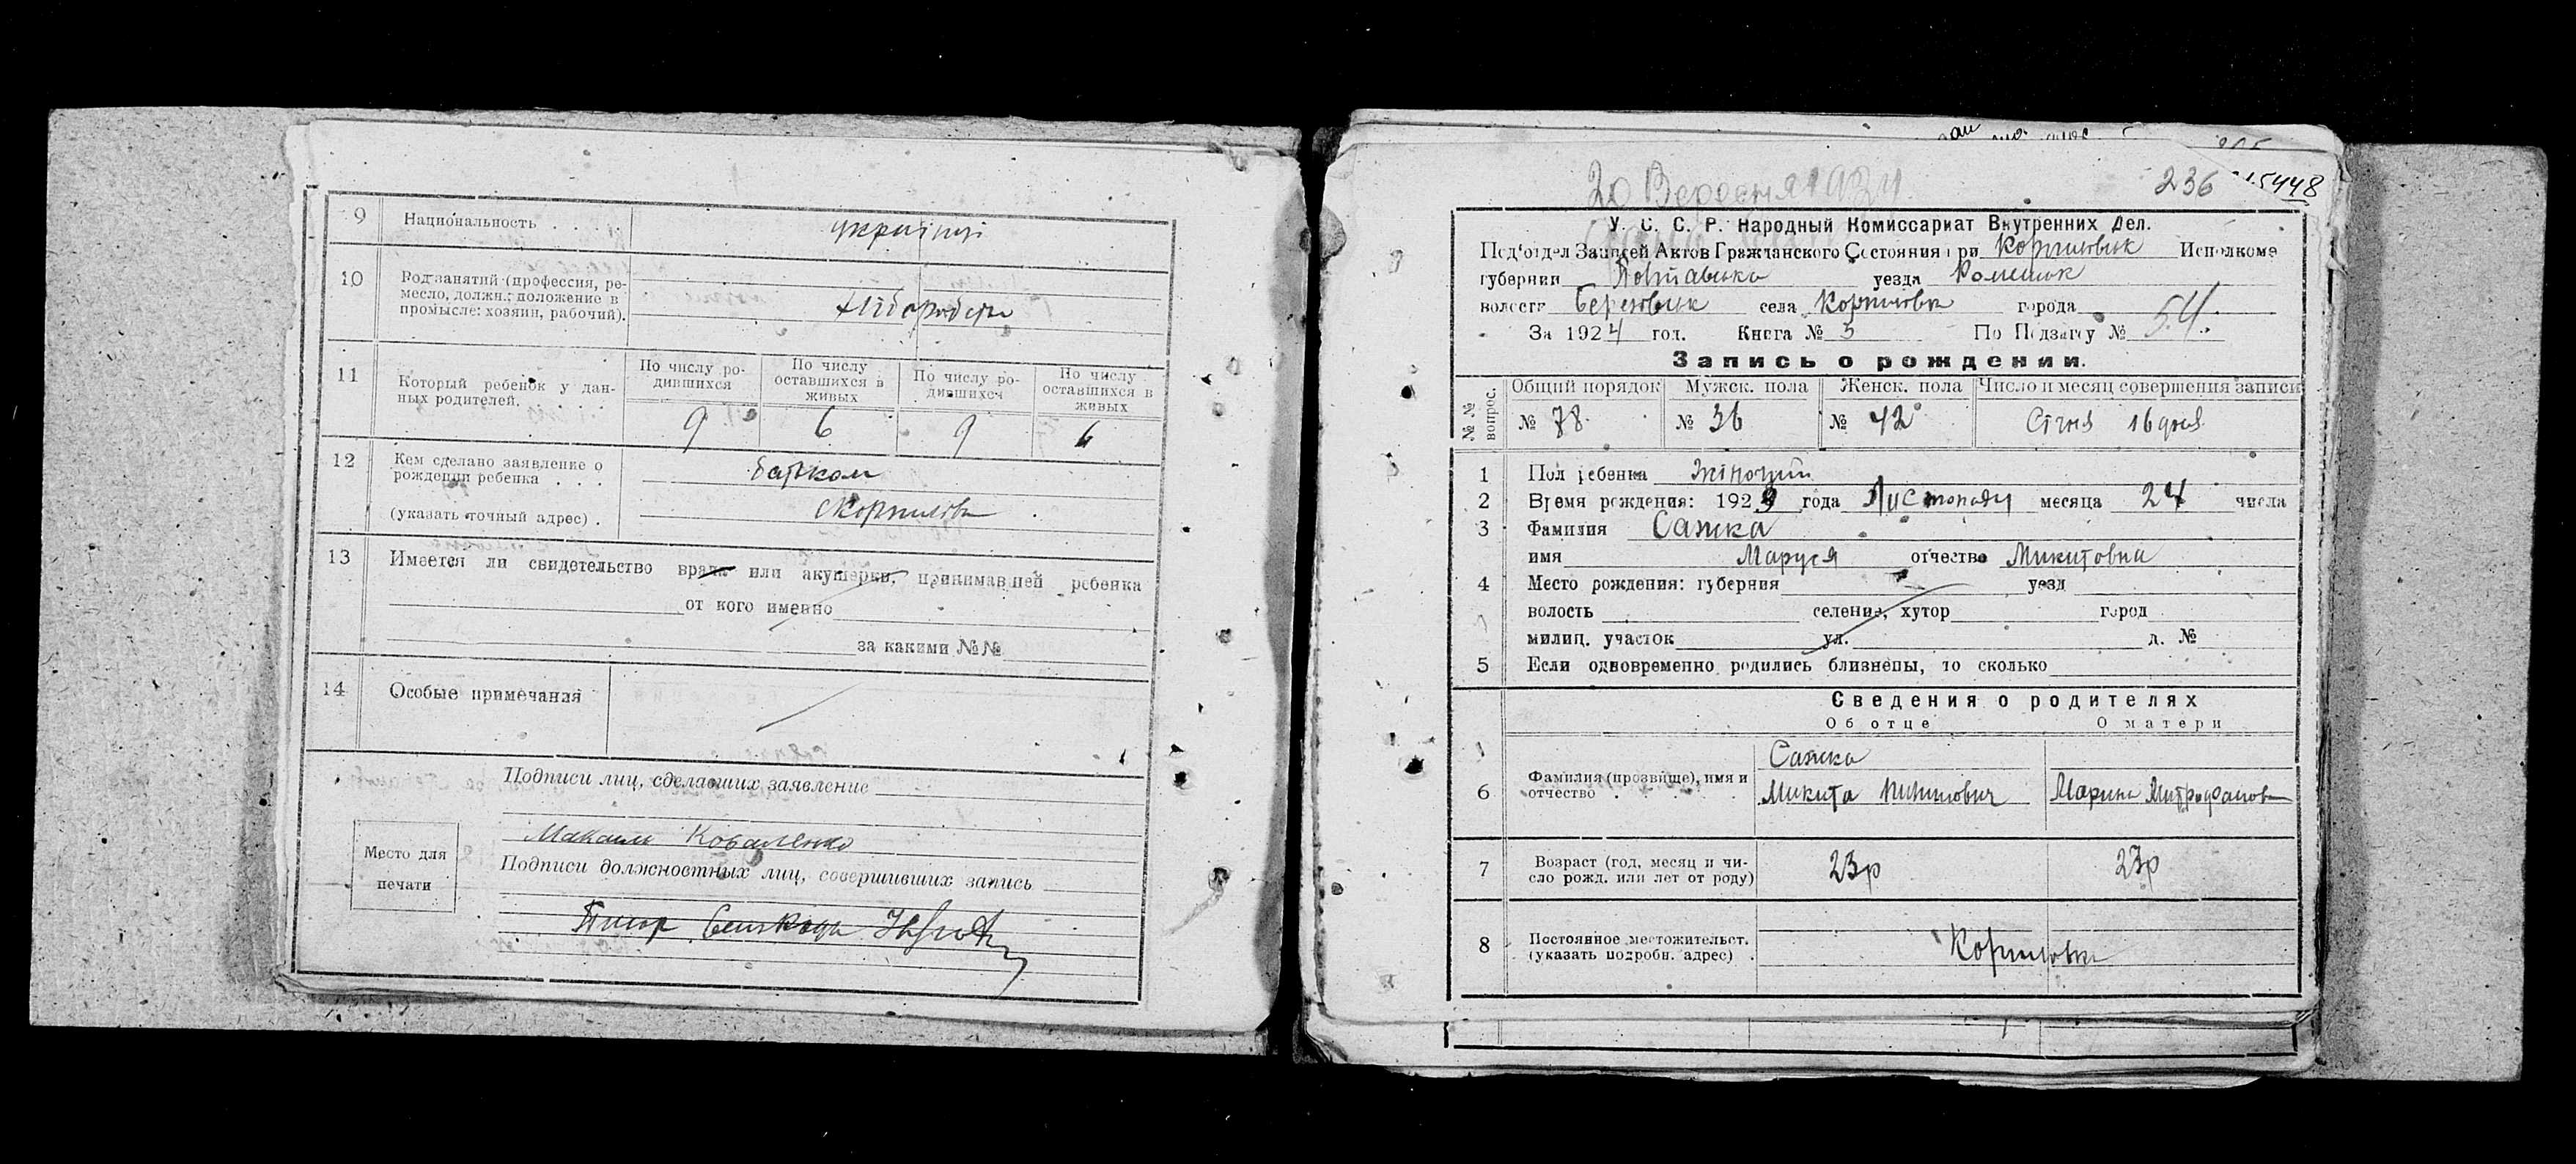 9 Национальность . . . . українці
10 Род занятий (профессия, ре-
месло, должн.: положение в
промысле: хозяин, рабочий). Хлібороби
11 Который ребенок у дан-
ных родителей. . . . .
По числу ро-
дившихся
По числу
оставшихся в
живых
По числу ро-
дившихся
По числу
оставшихся в
живых
9 6 9 6
12 Кем сделано заявление о
рождении ребенка . . . батьком
(указать точный адрес) .
13 Имеется ли свидетельство врача или акушерки, принимавшей ребенка
от кого именно
за какими №№
14 Особые примечания
Подписи лиц, сделавших заявление
Максим Коваленко
Подписи должностных лиц, совершивших запись
Место для
печати
20 Вересня 1924
236
У. С. С. Р. Народный Комиссариат Внутренних Дел.
Под'отдел Записей Актов Гражданского Состояния при Исполкоме
губернии Полтавська уезда Роменск
волости села города
За 1924 год. Книга № 3 По Подзагсу № 54
Запись о рождении.
№№ вопрос.
Общий порядок Мужск. пола Женск. пола Число и месяц совершения записи
№ 78 № 36 № 42 Січня 16 дня
1 Пол ребенка жіночий
2 Время рождения: 1923 года Листопаду месяца 24 числа
3 Фамилия Сажка
имя Маруся отчество Микитовна
4 Место рождения: губерния уезд
волость селение, хутор город
милиц. участок ул. д. №
5 Если одновременно родились близнецы, то сколько
Сведения о родителях
Об отце О матери
6 Фамилия (прозвище), имя и
отчество . . . .
Сажка
Микита Марина Митрофанов
7 Возраст (год, месяц и чи-
сло рожд. или лет от роду) 23р 23р
8 Постоянное местожительст.
(указать подробн. адрес) .